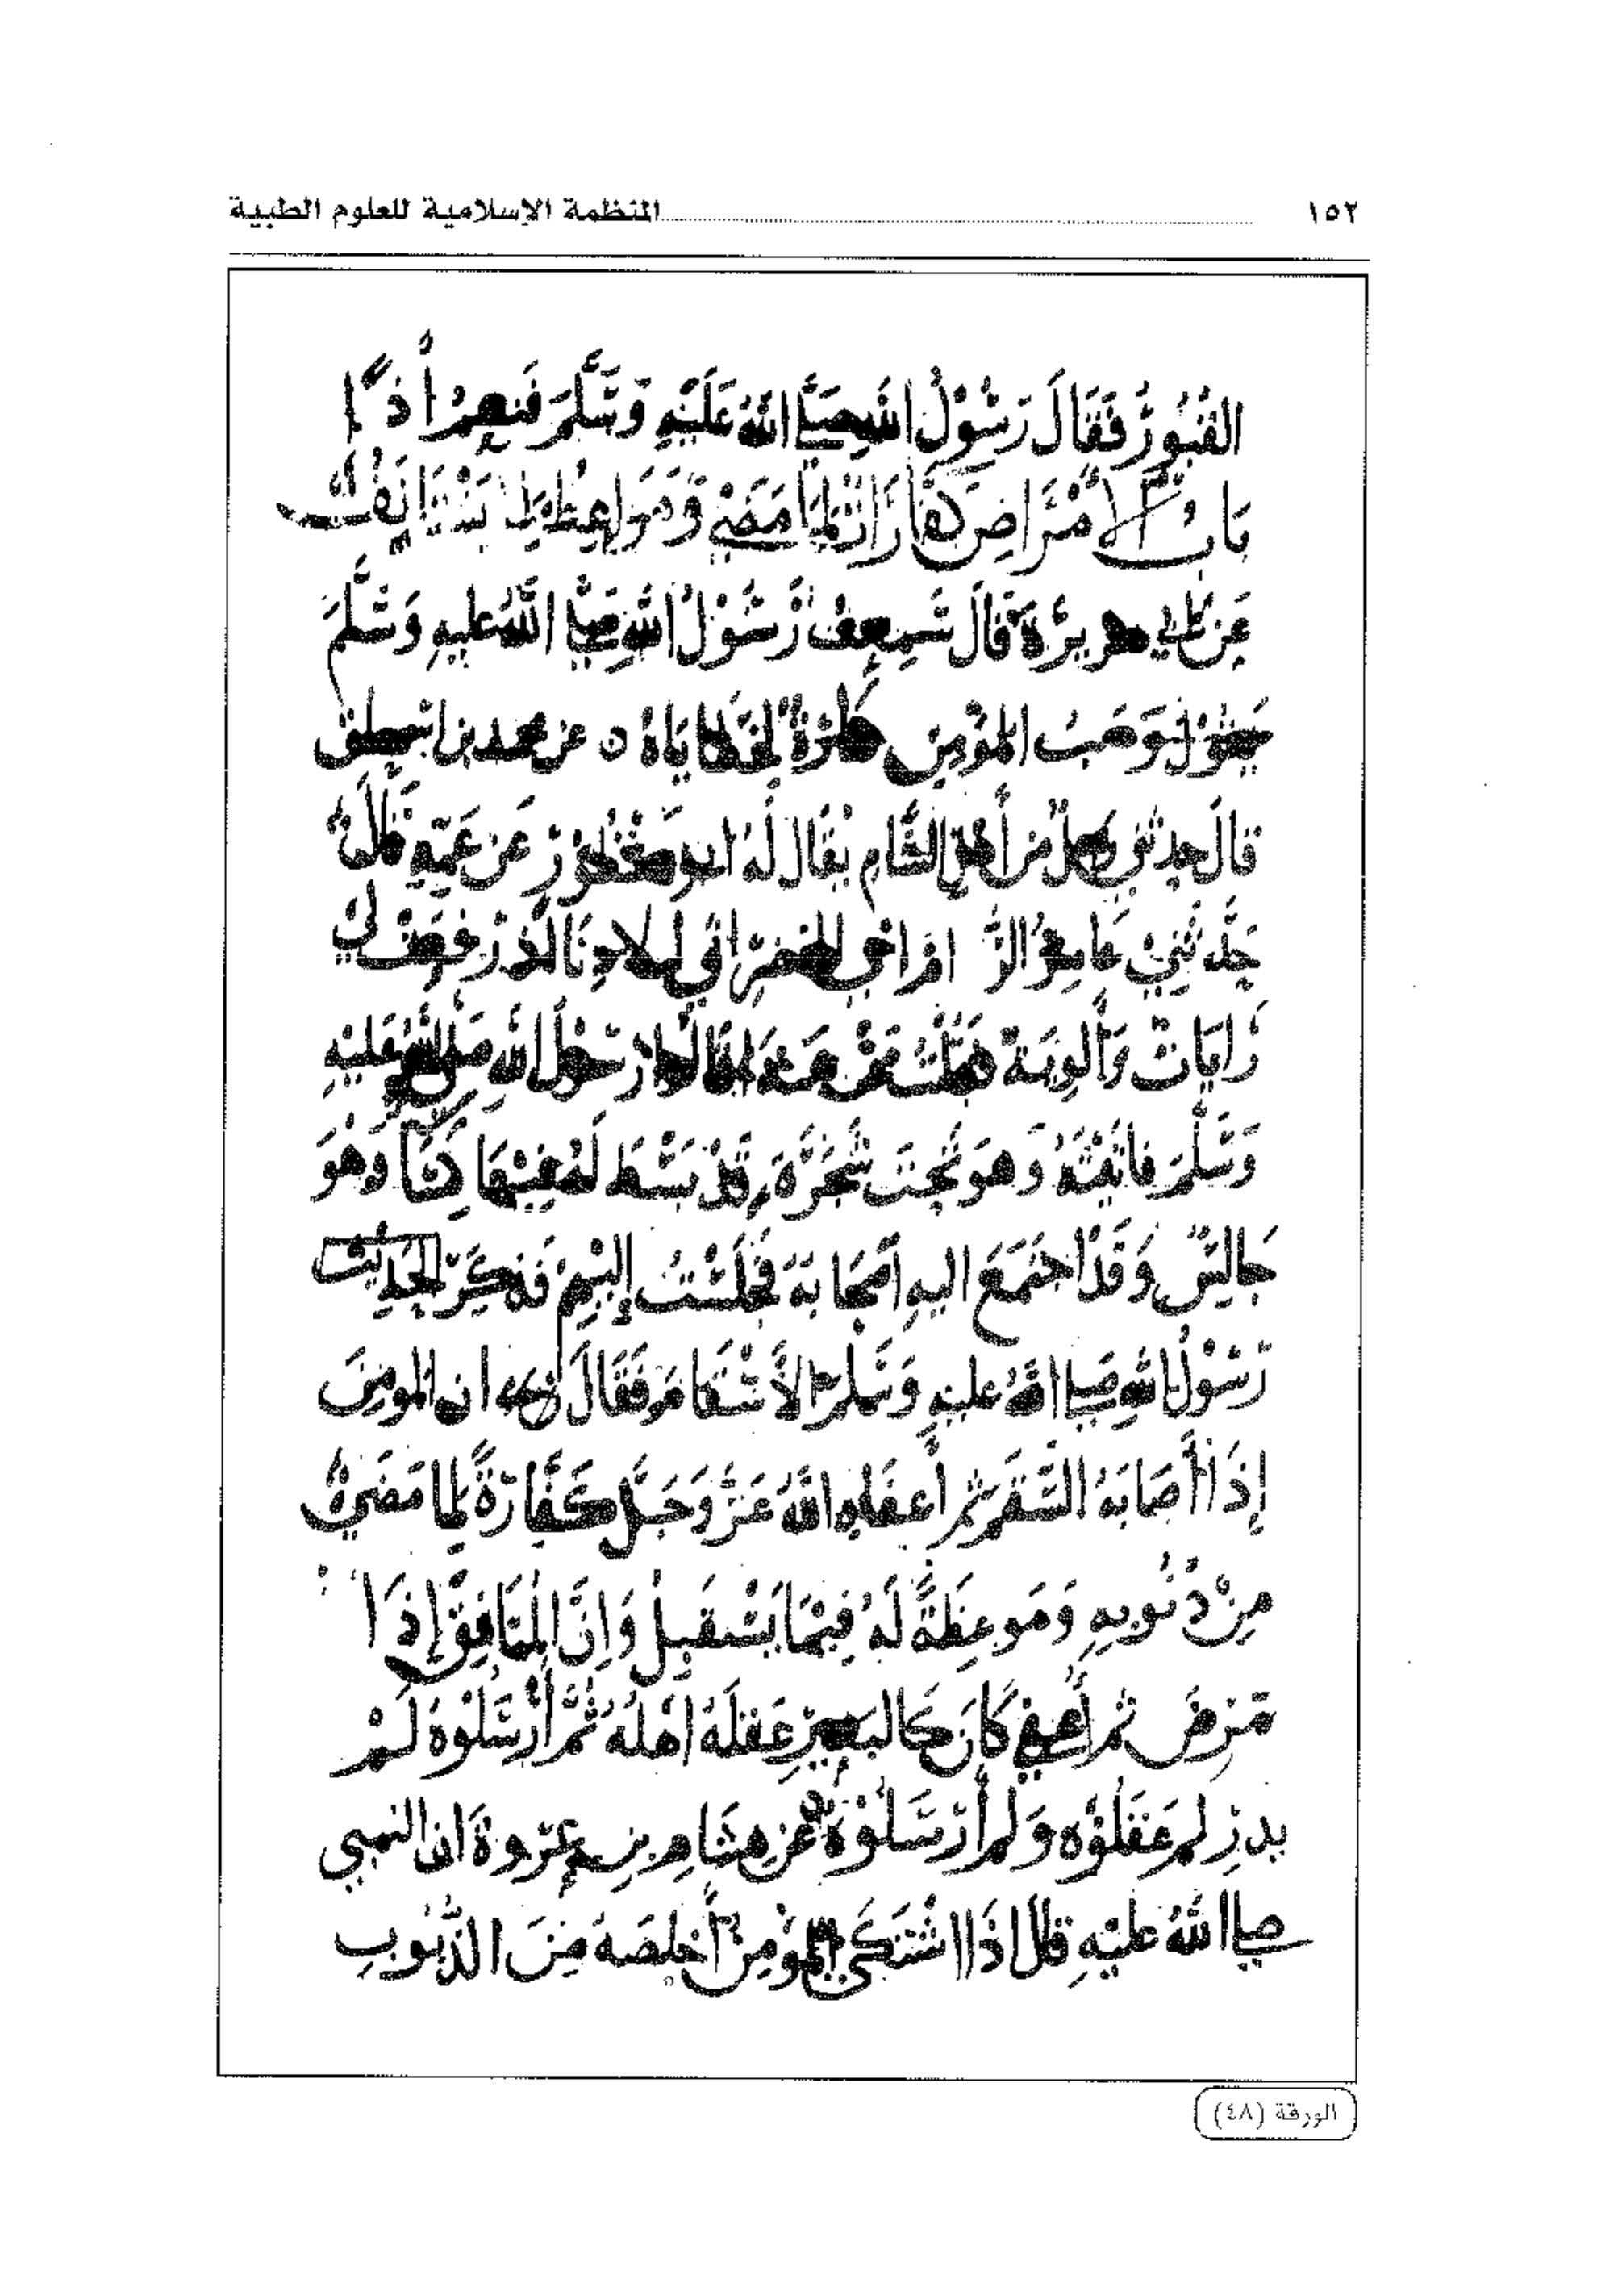 ١٥٢ المنظمة الإسلامية للعلوم الطبية
القُبُورُ فَقَالَ رَسُوْلُ اللهِ صَلَّى اللهُ عَلَيْهِ وَسَلَّمَ فَنِعْمَ أذًا
بَابُ الأمْرَاضِ كَفَّارَاتٌ لِمَا مَضَى وَمَوَاعِظ
عَن أبي هريرَةَ قالَ سَمِعتُ رَسُوْلُ اللهِ صَلَّى اللهُ عليهِ وَسَلَّمَ
يَقُوْلُ وَصَبُ المُؤمِنِ كفّارَةٌ لِخَطَايَاهُ ن عن محمد بن اسحق
قالَ حدثني رجلٌ مِن أهلِ الشَّامِ يُقَال لَهُ ابو مَنْظُوْرٍ عَن عَمِّهِ قالَ
حَدَّثَنِيْ عَامِرُ الرَّامِ اخو الخضر اني لببلادِنَا اذ رُفِعَتْ لي
رَايَاتٌ وَألوِيَة فقلتُ مَن هَذا قالُوا رَسُولُ اللهِ صَلَّى اللهُ عَلَيْهِ
وَسَلَّمَ فاتَيْتُهُ وَهوَ تَحْتَ شَجَرَةٍ قَدْ بَسَطَ لَهُ تحتها كِسَاً وَهُوَ
جَالِسٌ وَقَدْ اجتَمَعَ اليهِ أصْحَابَهُ فَجَلَسْتُ إليْهِمْ فَذكَرَ الحَدِيْث
رَسُوْلُ اللهِ صَلَّى اللهُ عليهِ وَسَلَّم الأسْقَامَ فَقَالَ ان المُومِنَ
إذَا أصَابَهُ السَّقَمُ ثم أعفَاهُ اللهُ عَزَّ وَجَلَّ كَفَّارَةً لِمَا مَضَى
مِنْ ذُنُوبِهِ وَمَوعِظَةً لَهُ فِيْمَا يَسْتَقبِلُ وَاِنَّ المُنَافِقَ إذَا
مَرِضَ ثم أُعفي كَانَ كَالبَعِيْرِ عَقلَهُ اهْلُهُ ثُمَّ أرْسَلُوْهُ لَمْ
يدرِ لم عَقَلُوْهُ وَلم أرْسَلُوْهُ عَن هِشَامِ بنِ عُرْوةَ ان النبي
صلى اللهُ عليْهِ قال اذَا اشْتَكَى المُؤمِنُ أخلصَهُ مِنَ الذُّنُوبِ
الورقة (٤٨)